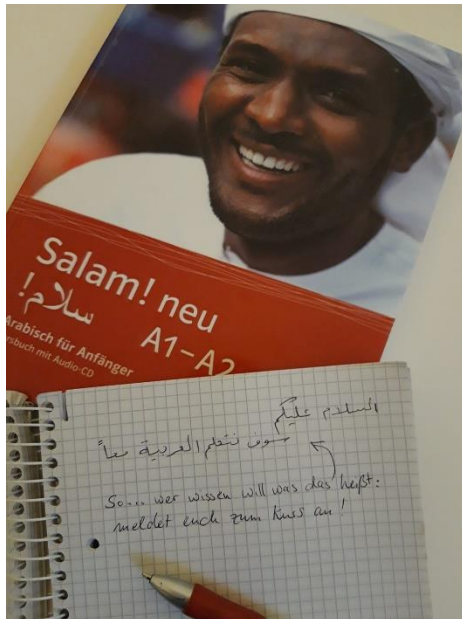 Salam! neu
سلام!
A1–A2
Arabisch für Anfänger
rsbuch mit Audio-CD
السلام عليكم
سوف نتعلم العربية معاً
So... wer wissen will was das heißt:
meldet euch zum Kurs an!